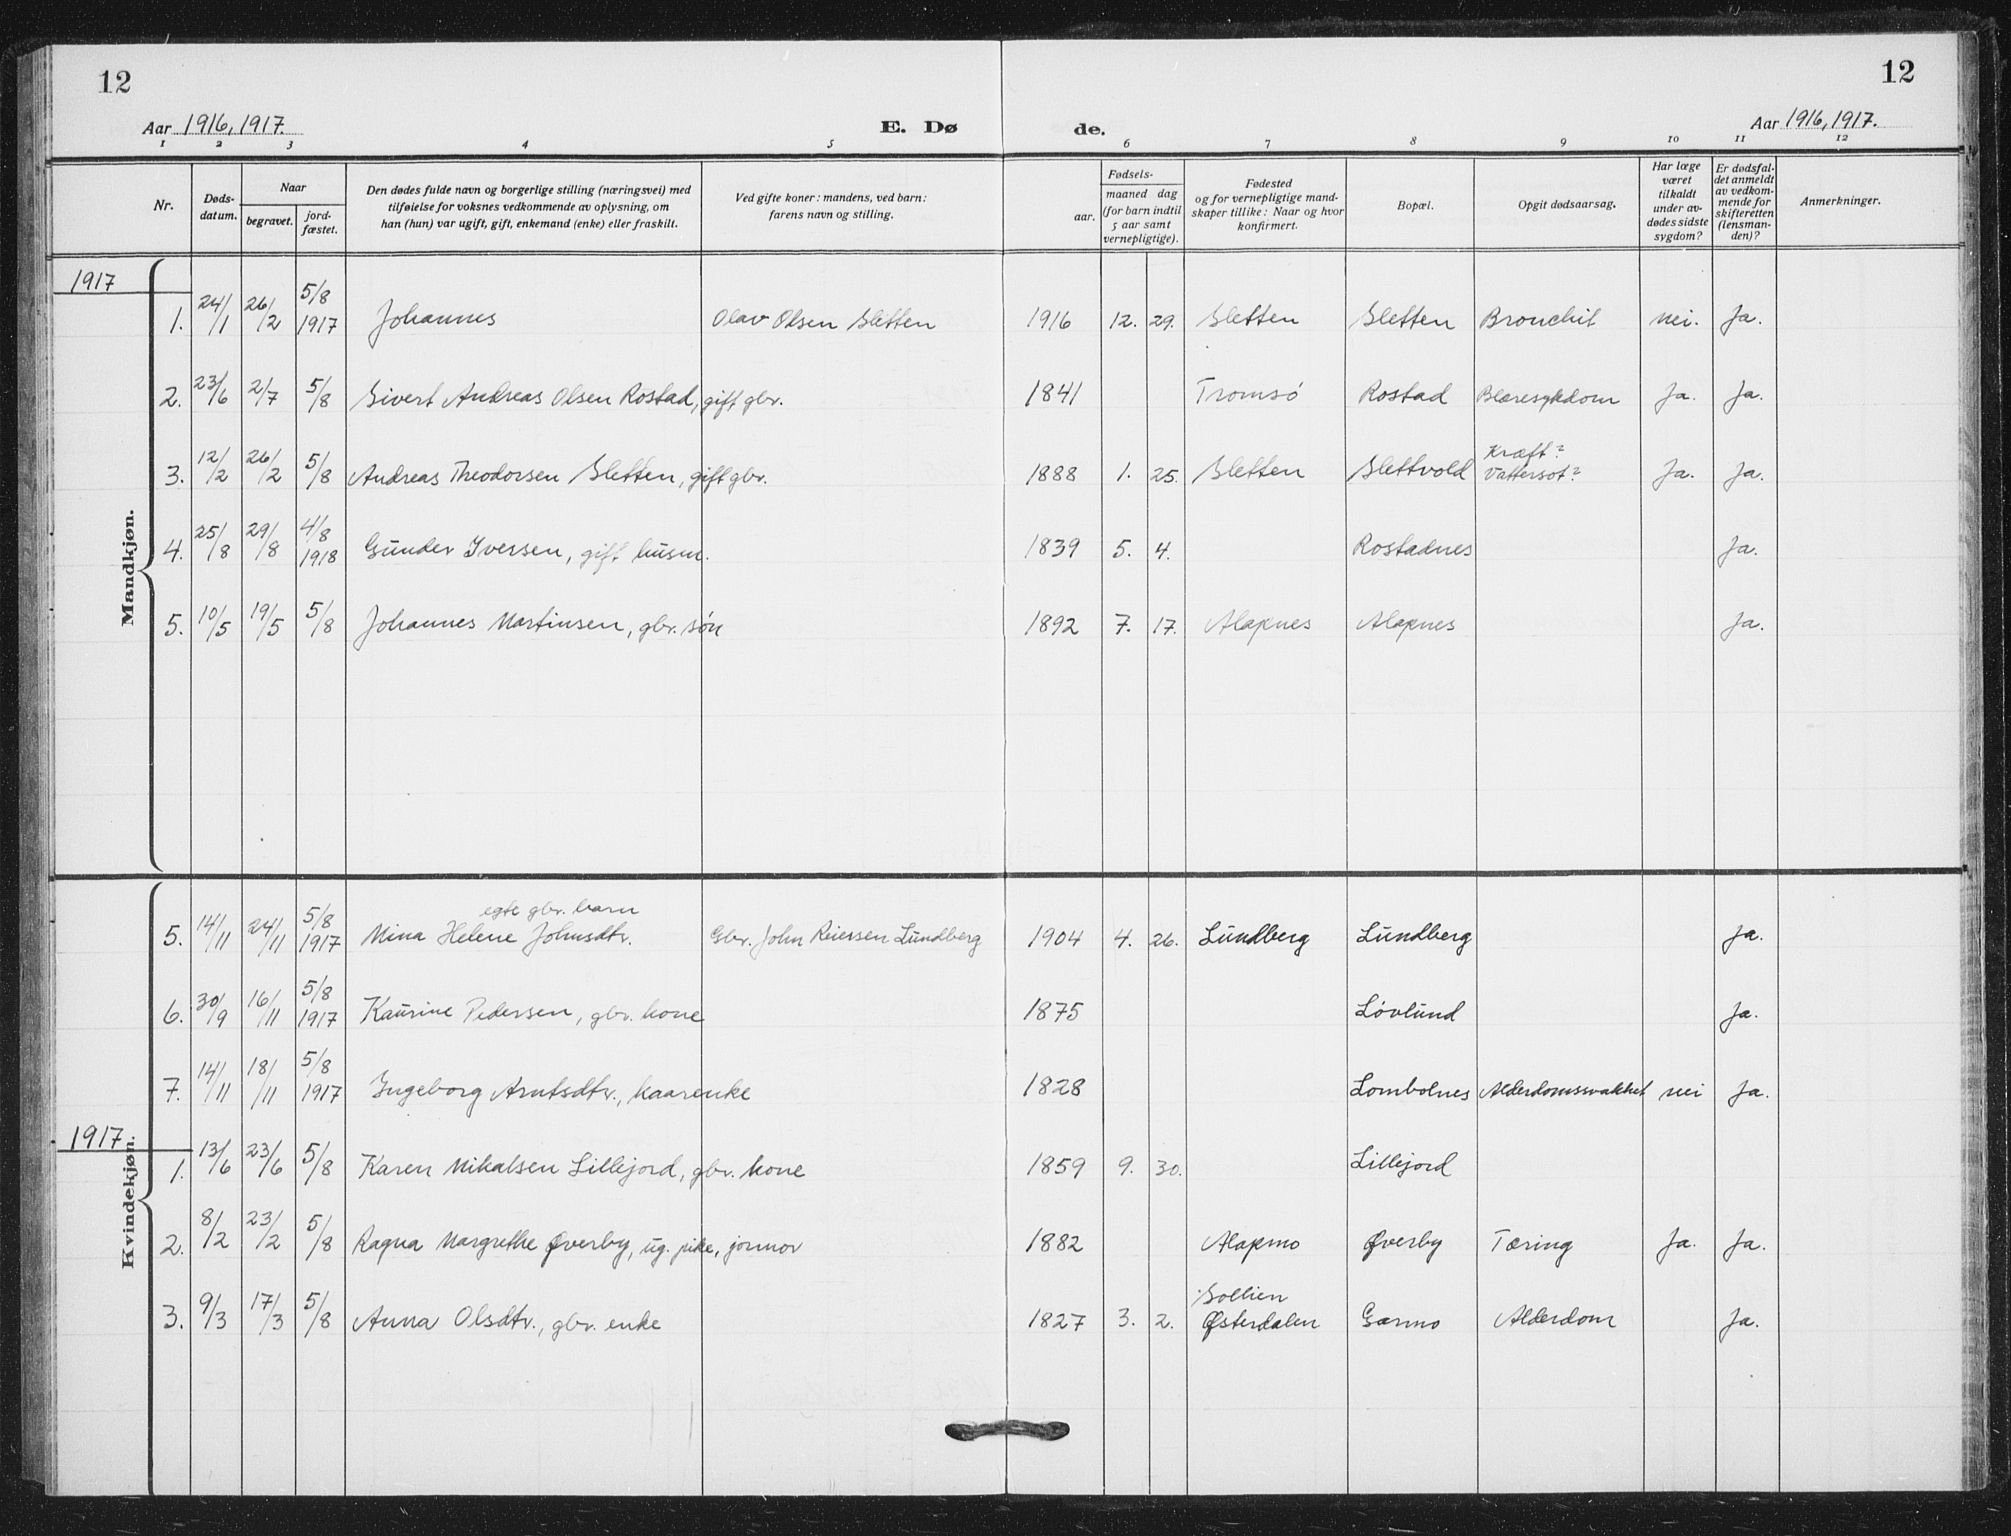 12
12
Aar 1916, 1917.
E. Dø
de.
Aar 1916, 1917.
1 2 3 4 5 6 7 8 9 10 11 12
Nr.
Døds-
datum.
Naar
begravet.
jord-
fæstet.
Den dødes fulde navn og borgerlige stilling (næringsvei) med
tilføielse for voksnes vedkommende av oplysning, om
han (hun) var ugift, gift, enkemand (enke) eller fraskilt.
Ved gifte koner: mandens, ved barn:
farens navn og stilling.
Fødsels-
aar.
maaned dag
(for barn indtil
5 aar samt
vernepligtige).
Fødested
og for vernepligtige mand-
skaper tillike: Naar og hvor
konfirmert.
Bopæl.
Opgit dødsaarsag.
Har læge
været
tilkaldt
under av-
dødes sidste
sygdom?
Er dødsfal-
det anmeldt
av vedkom-
mende for
skifteretten
(lensman-
den)?
Anmerkninger.
Mandkjøn.
1917
1. 24/1 26/2 5/8 1917 Johannes Olav Olsen Sletten 1916 12. 29. Sletten Sletten Bronchit nei. Ja.
2. 23/6 2/7 5/8 Sivert Andreas Olsen Rostad, gift gbr. 1841 Tromsö Rostad Blæresykdom Ja. Ja.
3. 12/2 26/2 5/8 Andreas Theodorsen Sletten, gift gbr. 1888 1. 25. Sletten Slettvold Kræft? Vattersot? Ja. Ja.
4. 25/8 29/8 4/8 1918 Gunder Iversen, gift husm. 1839 5. 4. Rostadnes Ja.
5. 10/5 19/5 5/8 Johannes Martinsen, gbr. søn 1892 7. 17. Alapnes Alapnes Ja.
Kvindekjøn.
egte gbr. barn
5. 14/11 24/11 5/8 1917 Mina Helene Johnsdtr. Gbr. John Reiersen Lundberg 1904 4. 26. Lundberg Lundberg Ja.
6. 30/9 16/11 5/8 1917 Kaurine Pedersen, gbr. kone 1875 Løvlund Ja.
7. 14/11 18/11 5/8 1917 Ingeborg Arntsdtr., kaarenke 1828 Lombolnes Alderdomssvakhet nei Ja.
1917
1. 13/6 23/6 5/8 Karen Mikalsen Lillejord, gbr. kone 1859 9. 30. Lillejord
2. 8/2 23/2 5/8 Ragna Margrethe Øverby, ug. pike, jormor 1882 Alapmo Øverby Tæring Ja. Ja.
3. 9/3 17/3 5/8 Anna Olsdtr., gbr. enke 1827 3. 2. Sollien Østerdalen Garmo Alderdom Ja.